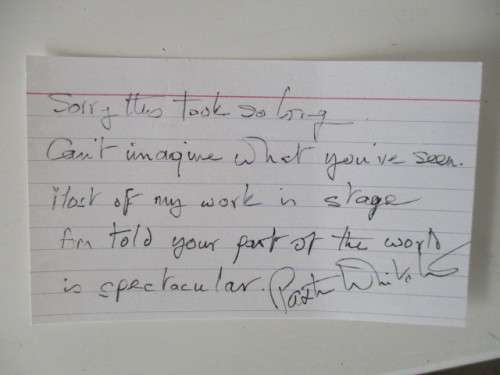 Sorry this took so long
Can't imagine what you've seen.
Most of my work in stage
Am told your part of the world
is spectacular.